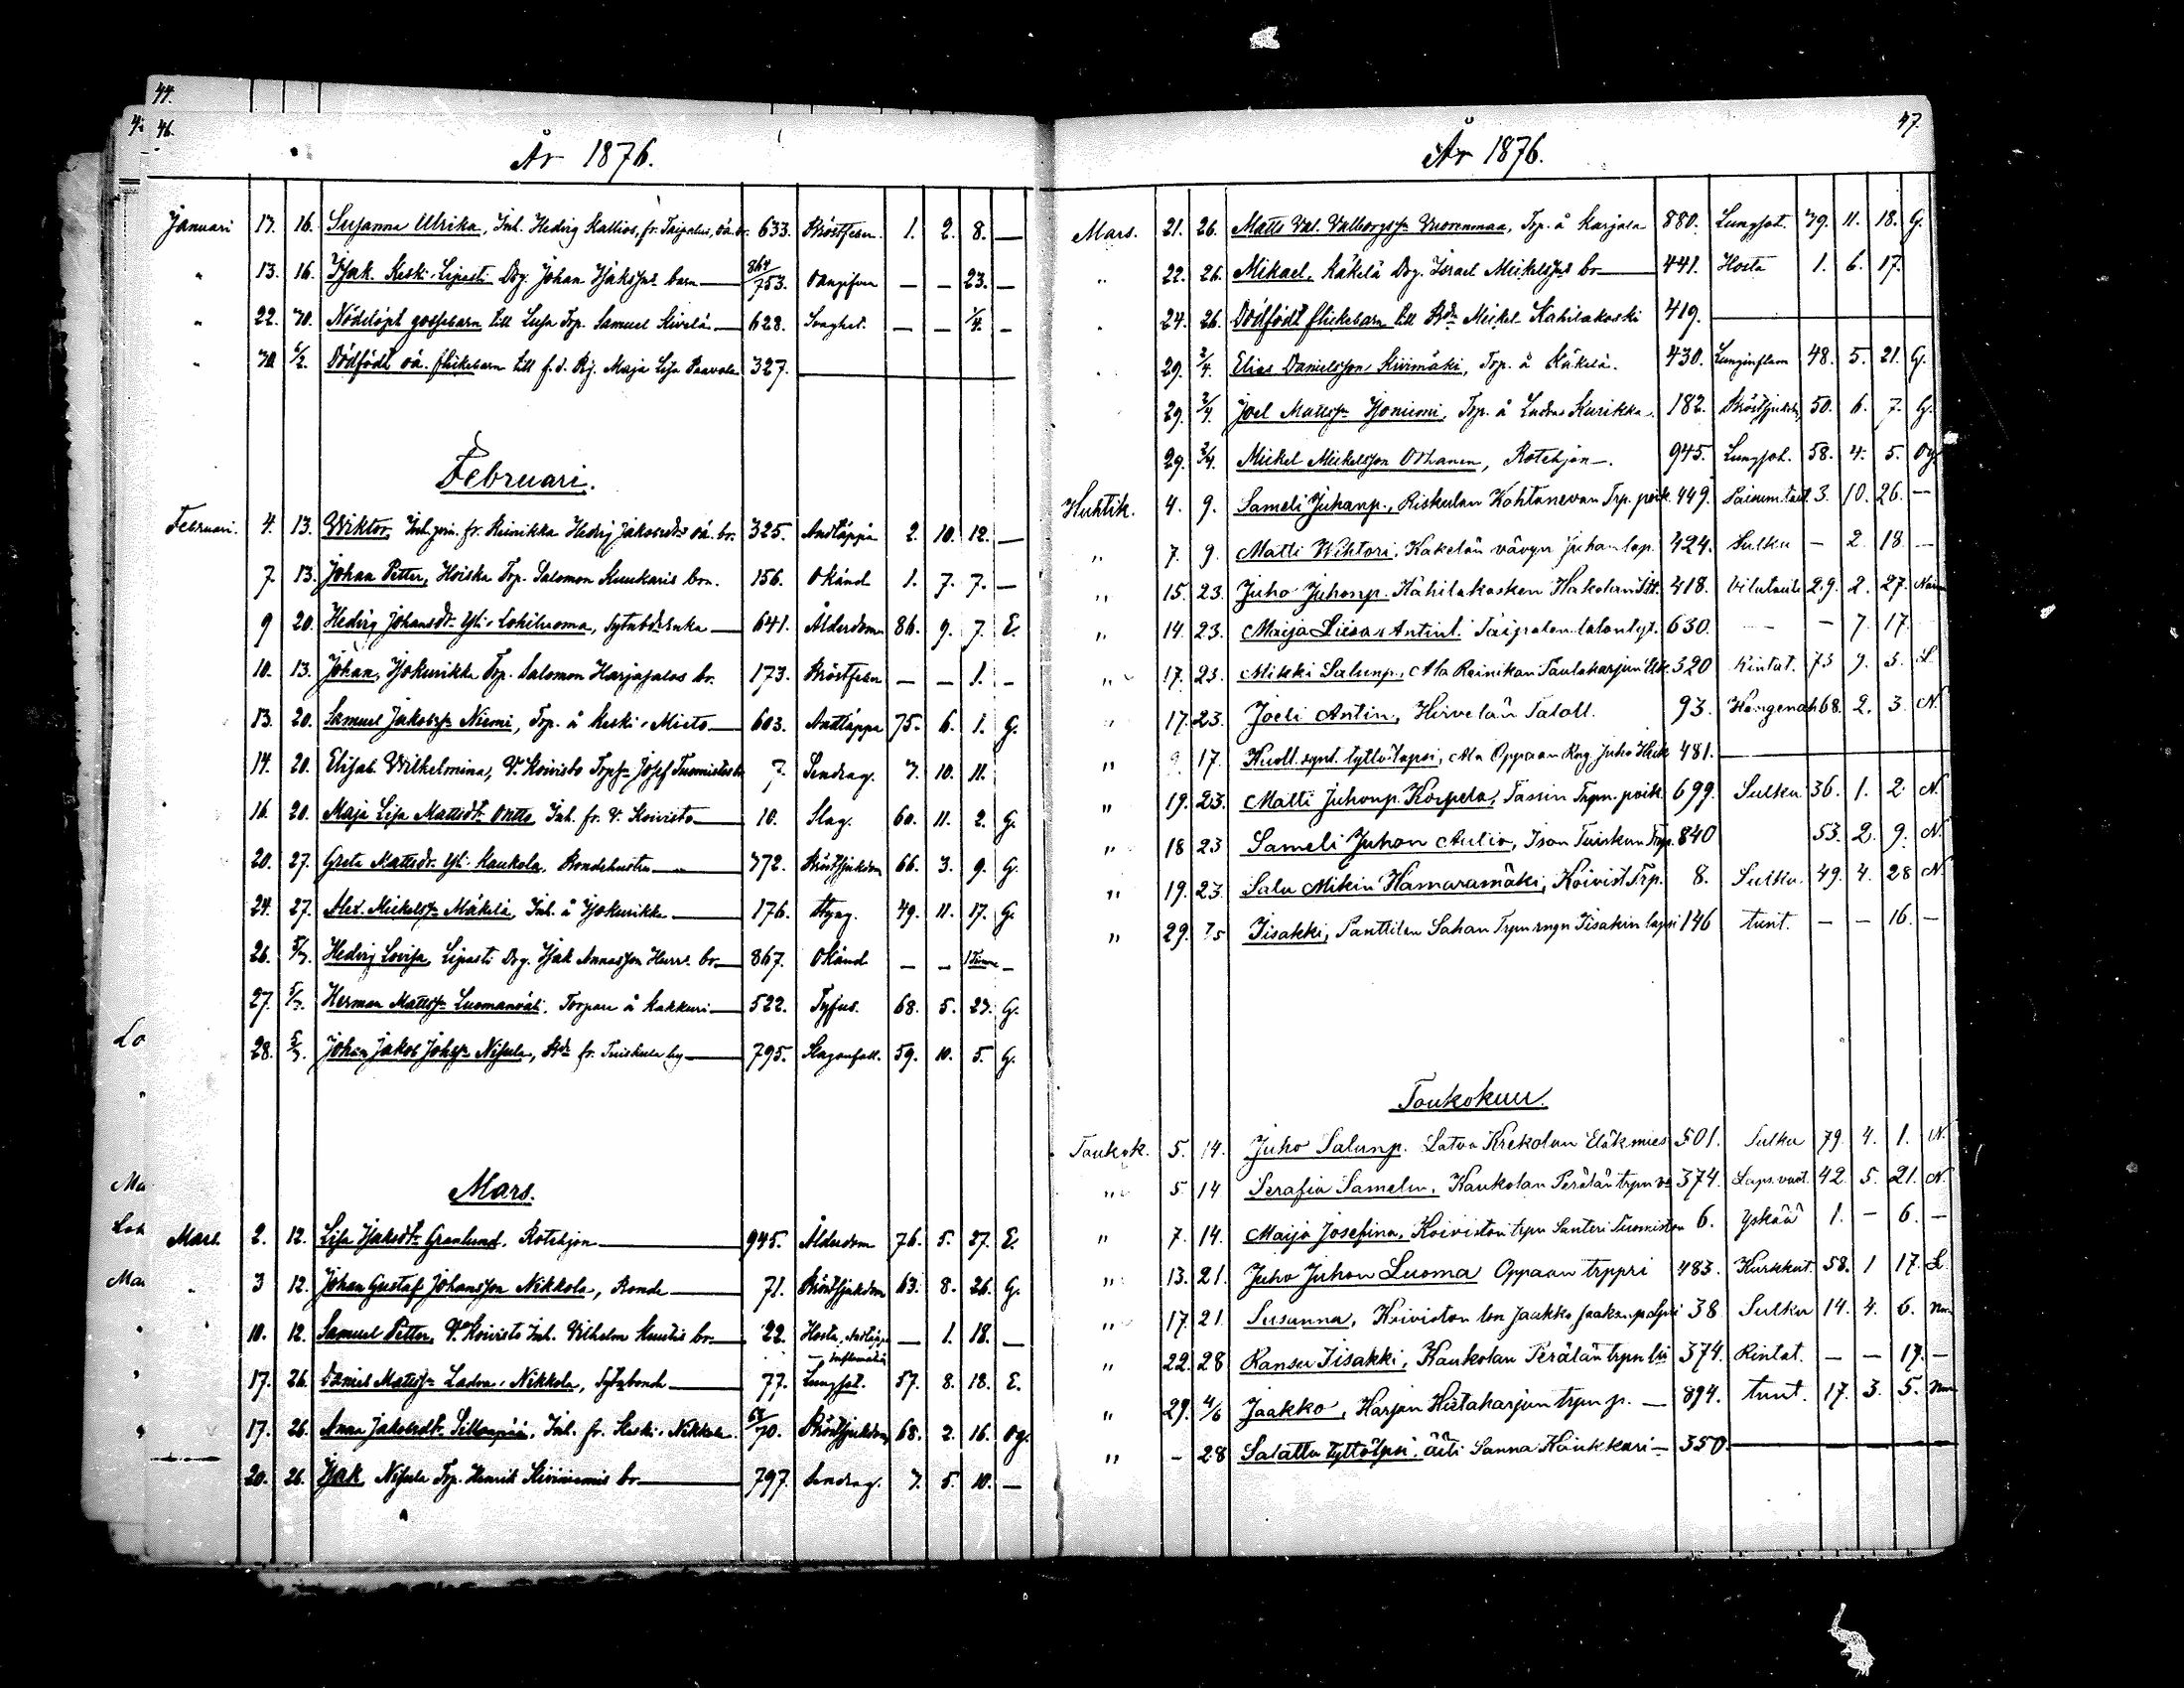 44.
46.
År 1876.
Januari 13. 16. Susanna Ulrika, Inh. Hedvig Kallios, fr. Taipalus, oä. br. 633. Bröstfeber. 1. 2. 8. —
" 13. 16. Isak Keski-Lipasti Drg. Johan Isakssons barn — 864/753. Okänd — — 23. —
" 22. 30. Nöddöpt gossebarn till Trp. Samuel Kivelä — 628. Svaghet. — — 1/4. —
" 30. 6/2. Dödfödt oä. flickebarn till f.d. Pig. Maja Lisa Paavola 327. —
Februari.
Februari. 4. 13. Wiktor, fr. Reinikka Hedvig Jakobsdrs oä. br. 325. Andtäppa 2. 10. 12. —
7. 13. Johan Petter, Hoiska Trp. Salomon Kuukaris brn. 156. Okänd 1. 7. 7. —
9 20. Hedvig Johansdr Yli-Lohiluoma, Sytnbdeenka — 641. Ålderdom 86. 9. 7. E.
10. 13. Johan, Isokurikka Trp. Salomon Harjasalos br. 173. Bröstfeber — — 1. —
13. 20. Samuel Jakobsson Niemi, Trp. å Keski-Mieto — 603. Andtäppa 75. 6. 1. G.
14. 20. Elisab. Wilhelmina, V. Koivisto Josef Tuomistos br 7. Sendrag. 3. 10. 11.
16. 20. Maja Lisa Mattsdr Ontto Inh. fr. V. Koivisto — 10. Slag. 60. 11. 2. G.
20. 27. Greta Mattsdr Yli-Kaukola, Bondehustru — 372. Bröstsjukdom 66. 3. 9. G.
24. 27. Alex. Mickelsson Mäkelä, Inh. å Isokurikka — 176. Styng. 49. 11. 17. G.
26. 5/3. Hedvig Lovisa, Lipasti Drg. Isak Annasson Harri br — 867. Okänd — — 1 Timme —
27. 5/3. Herman Mattsson Luomanväli, Torpare å Kakkuri — 522. Tyfus. 68. 5. 23. G.
28. 5/3. Johan Jakob Johsson Nisula, Bde fr. Tuiskula by — 795. Slaganfall. 59. 10. 5. G.
Mars.
Mars. 2. 12. Lisa Isaksdr Granlund, Rotehjon — 945. Ålderdom 76. 5. 27. E.
" 3 12. Johan Gustaf Johansson Nikkola, Bonde — 71. Bröstsjukdom 63. 8. 26. G.
" 10. 12. Samuel Petter, V. Koivisto Inh. Vilhelm br — 22. Hosta, Andtäppa — 1. 18. —
" 17. 26. Daniel Mattsson Ladva-Nikkola, Sytnbonde — 77. Lunginflammation 57. 8. 18. E.
" 17. 26. Anna Jakobsdr Sillanpää, Inh. fr. Keski-Nikkola. 68/70. Bröstsjukdom 68. 2. 16. Og.
20. 26. Isak Nisula Trp. Henrik Kiviniemis br — 797. Sendrag. 3. 5. 10. —
47.
År 1876.
Mars. 21. 26. Matts Vuorenmaa, Trp. å Karjala 880. Lungsot. 39. 11. 18. G.
" 22. 26. Mikael, Käkelä Drg. Israel Mickelssons br — 441. Hosta 1. 6. 17.
" 24. 26. Dödfödt flickebarn till Bdn Mickel Kahilakoski 419. —
" 29. 2/4. Elias Danielsson Kiirimäki, Trp. å Käkelä. 430. Lunginflam 48. 5. 21. G.
29. 2/4. Joel Mattsson Isoniemi, Trp. å Ladva Kurikka. 182. Bröstsjukdom 50. 6. 7. G.
29. 2/4. Mickel Mickelsson Orhanen, Rotehjon —. 945. Lungsot. 58. 4. 5. Og.
Huhtik. 4. 9. Sameli Juhanp., Riskulan Kohtanevan Trp. poik. 449. 3. 10. 26. —
" 7. 9. Matti Wihtori, Kakelän vävyn Juhan lap. 424. Sulku — 2. 18. —
" 15. 23. Juho Juhonp. Kähilakosken Hakolan 418. Vilutauti 29. 2. 27. Nam
" 14. 23. Maija Liisa Antint. Taipalen talontyt. 630. — — 7. 17.
" 17. 23. Mikki Salunp., Ala Reinikan Taulaharjun 320 Rintat. 73 9. 3. L.
" 17. 23. Joeli Antin, Hirvelän Taloll. 93. Hengenah. 68. 2. 3. N.
" 9. 17. Kuoll. synt. tyttö lapsi, Ala Oppaan Rng. Juho 481. —
" 19. 23. Matti Juhonp. Korpela, Tassin Trpn. poik. 699. Sulku. 36. 1. 2. N.
" 18 23 Sameli Juhon Aulio, Ison Tuiskun Trp. 840 53. 2. 9. N.
" 19. 23. Salu Mikin Hamaramäki, Koivist Trp. 8. Sulku. 49. 4. 28 N.
" 29. Iisakki, Panttilan Sahan Trpn rngn Iisakin lapsi 146 tunt. — — 16. —
Toukokuu.
Toukok. 5. 14. Juho Salunp. Latva Krekolan Eläkmies 501. Sulku 79. 4. 1. N.
" 5. 14 Serafia Samelin, Kaukolan Perälän trpn vo 374. Laps. vuot. 42. 5. 21. N.
" 7. 14. Maija Josefina, Koiviston trpn Santeri Tuomiston 6. Yskää 1. — 6. —
" 13. 21. Juho Juhon Luoma Oppaan trppri 483. Kurkkut. 58. 1 17. L.
" 17. 21. Susanna, Koiviston Jaakko 38 Sulku 14. 4. 6. Nm
" 22. 28 Ransu Iisakki, Kaukolan Perälän trpn lsi 374. Rintat. — — 17. —
" 29. 4/6 Jaakko, Harjan Hietaharjun trpn p. — 894. tunt. 17. 3. 5. Nm
" — 28 Salattu tyttölpsi. äiti Sanna Käukkäri — 350. —